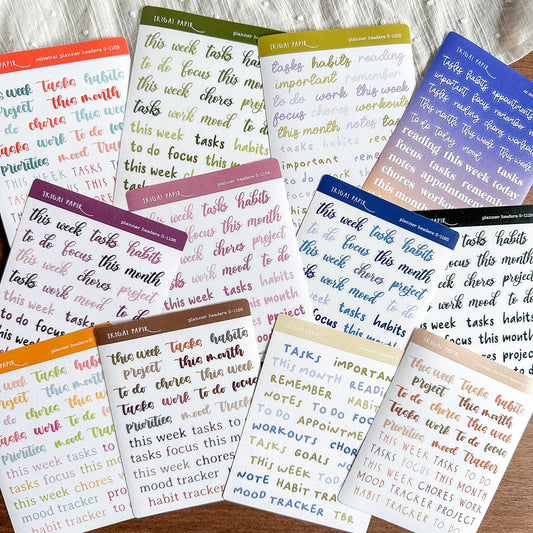 IKIGAI PAPIR
celestial planner headers S-1188
this week Tasks habits
project this month
to do chores this week
Tasks work To do focus
priorities mood Tracker
THIS WEEK TASKS THIS
IKIGAI PAPIR
planner headers
this week tasks
to do focus this month
this week chores project
tasks work mood to do
this week tasks
to do focus this
habits
IKIGAI PAPIR
planner headers
tasks habits reading
important remember
to do work workouts
focus chores
this month notes
important
IKIGAI PAPIR
tasks habits appointments
important focus remember
tasks reading chores workouts
this month this week notes
to do today mood
reading this week today
focus tasks remember
notes appointments
chores workouts
IKIGAI PAPIR
planner headers S-1195
this week tasks habits
to do focus this month
this week chores project
tasks work mood to do
this week tasks
to do focus this
IKIGAI PAPIR
planner headers S-1194
this week tasks habits
to do focus this month
this week chores project
tasks work mood to do
this week tasks
focus this month
IKIGAI PAPIR
planner headers S-1193
this week tasks habits
to do focus this month
this week chores
tasks work mood to do
this week tasks
to do focus
planner headers
tasks habits
focus this month
chores project
work mood to do
this week tasks habits
IKIGAI PAPIR
planner headers
this week Tasks habits
project this month
To do chores this week
Tasks work To do focus
priorities mood Tracker
this week tasks to do
tasks focus this month
this week chores work
mood tracker project
habit tracker to do
IKIGAI PAPIR
planner headers S-1196
this week Tasks habits
project this month
To do chores this week
Tasks work To do focus
priorities mood Tracker
this week tasks to do
tasks focus this month
this week chores work
mood tracker project
habit tracker to do
IKIGAI PAPIR
TASKS IMPORTANT
THIS MONTH READING
REMEMBER HABITS
NOTES TO DO FOCUS
TO DO APPOINTMENTS
WORKOUTS CHORES
TASKS GOALS
THIS WEEK TODAY
NOTE HABIT TRACKER
MOOD TRACKER TBR
IKIGAI PAPIR
planner headers
this week Tasks habits
project this month
To do chores this week
Tasks work To do focus
priorities mood Tracker
THIS WEEK TASKS TO DO
TASKS FOCUS THIS MONTH
THIS WEEK CHORES WORK
MOOD TRACKER PROJECT
HABIT TRACKER TO DO